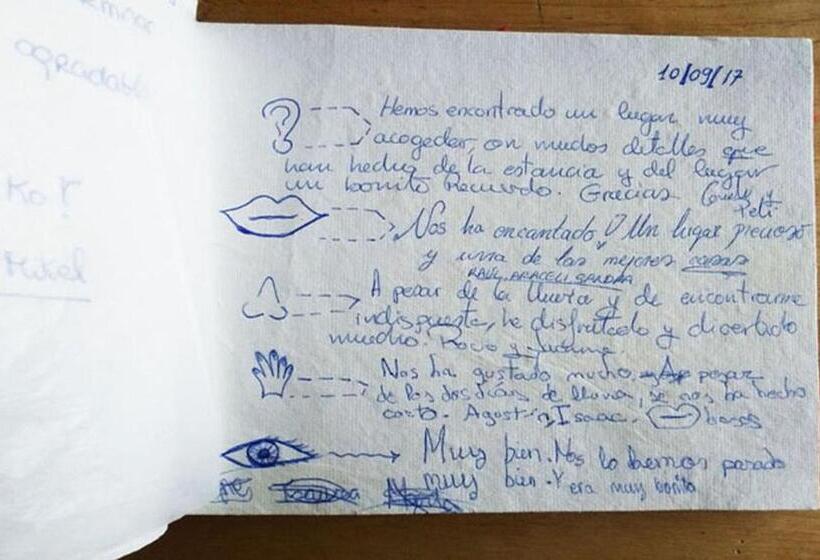 emnos
agradabl
Ko?
Mikel
10/09/17
Hemos encontrado un lugar muy
acogedor, con muchos detalles que
han hecho de la estancia y del lugar
un bonito recuerdo. Gracias y
Peti
Nos ha encantado! Un lugar precioso
y una de las mejores casas
RAUL, ARACELI, SANDRA
A pesar de la lluvia y de encontrarme
indispuesta, he disfrutado y divertido
mucho. Rocío y
Nos ha gustado mucho. A pesar
de los dos días de lluvia, se nos ha hecho
corto. Agustín, Isaac. besos
Muy bien. Nos lo hemos pasado
muy bien. Y era muy bonito